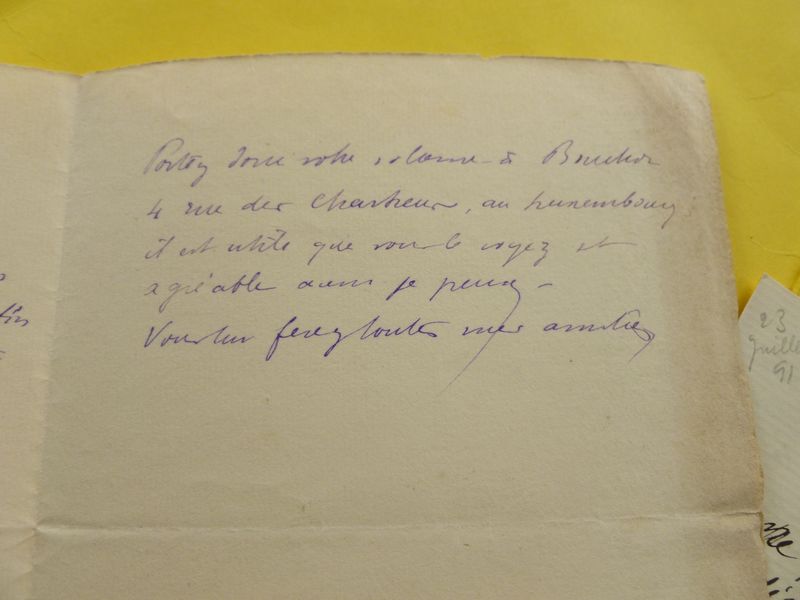 Portez donc votre volume à Bouchor
4 rue des Chartreux, au Luxembourg
il est utile que vous le voyez et
agréable aussi je pense
Vous lui ferez toutes mes amitiés
23
juillet
91